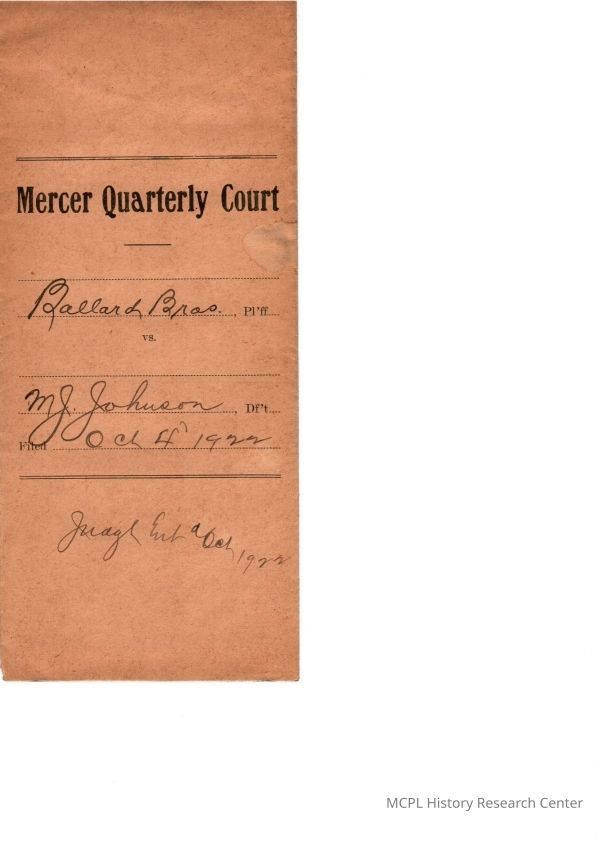 Mercer Quarterly Court
Ballard Bros., Pl'ff.
vs.
M.J. Johnson, Df't.
Filed Oct 4 1922
Judgt Ent Oct 1922
MCPL History Research Center